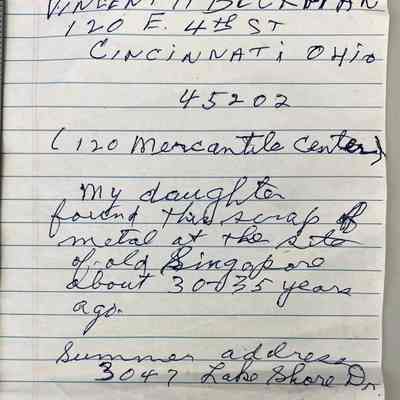 VINCENT H BECKMAN
120 E. 4th ST
CINCINNATI OHIO
45202
(120 Mercantile Center)
My daughter
found this scrap of
metal at the site
of old Singapore
about 30-35 years
ago.
Summer address
3047 Lake Shore Dr.